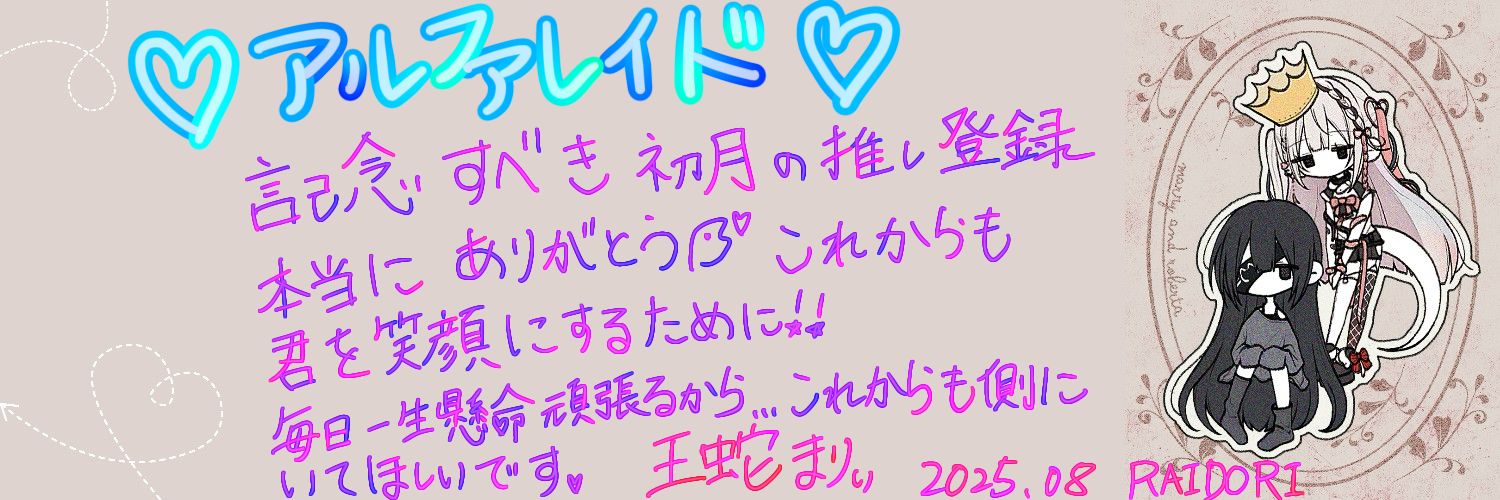 ♡アルファレイド♡
記念すべき初月の推し登録
本当にありがとう♡これからも
君を笑顔にするために!!
毎日一生懸命頑張るから...これからも側に
いてほしいです♥
王蛇まりぃ 2025.08 RAIDORI
marry and roberta